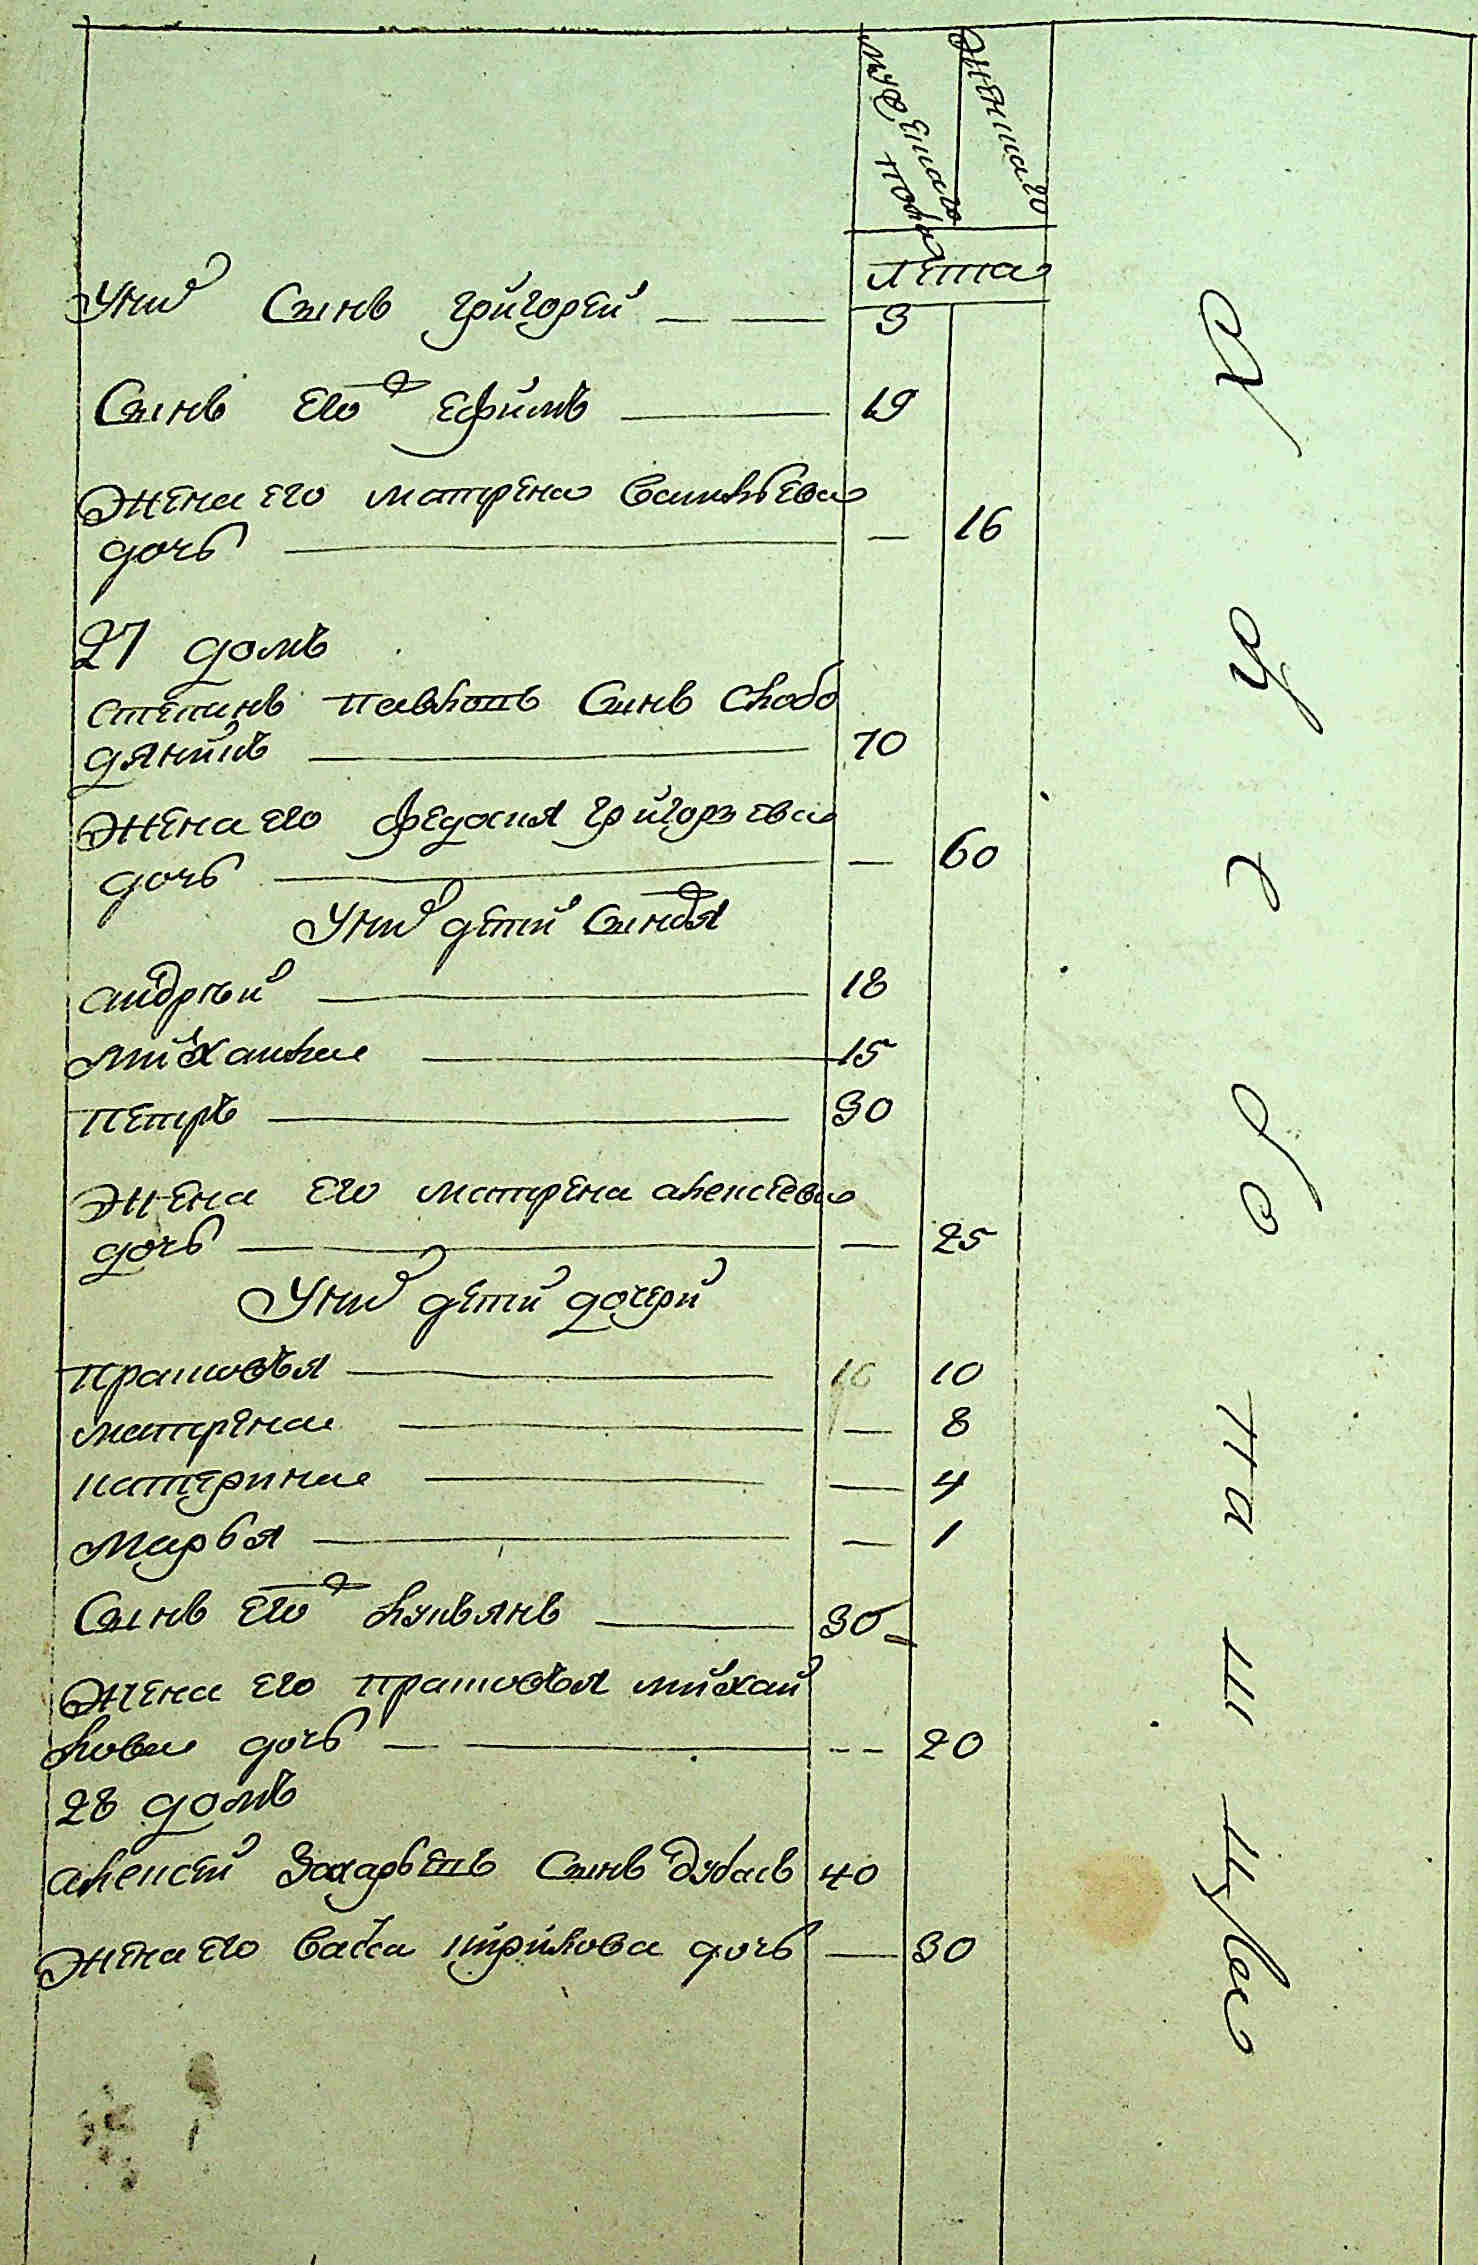 мужескаго полу женскаго
лета
у них сынъ григорей 3
сынъ его ж ефимъ 19
жена его матрена васильева
дочь 16
27 домъ
степанъ павловъ сынъ слобо
дянинъ 70
жена его федосия григорьева
дочь 60
у них дети сыновя
андрѣй 18
михаила 15
петръ 30
жена его матрена алексеева
дочь 25
у них дети дочери
прасковья 10
матрена 8
катерина 4
марья 1
сынъ его ж лукьянъ 30
жена его прасковья михай
лова дочь 20
28 домъ
алексей захарьевъ сынъ дубасъ 40
жена его васса кирилова дочь 30